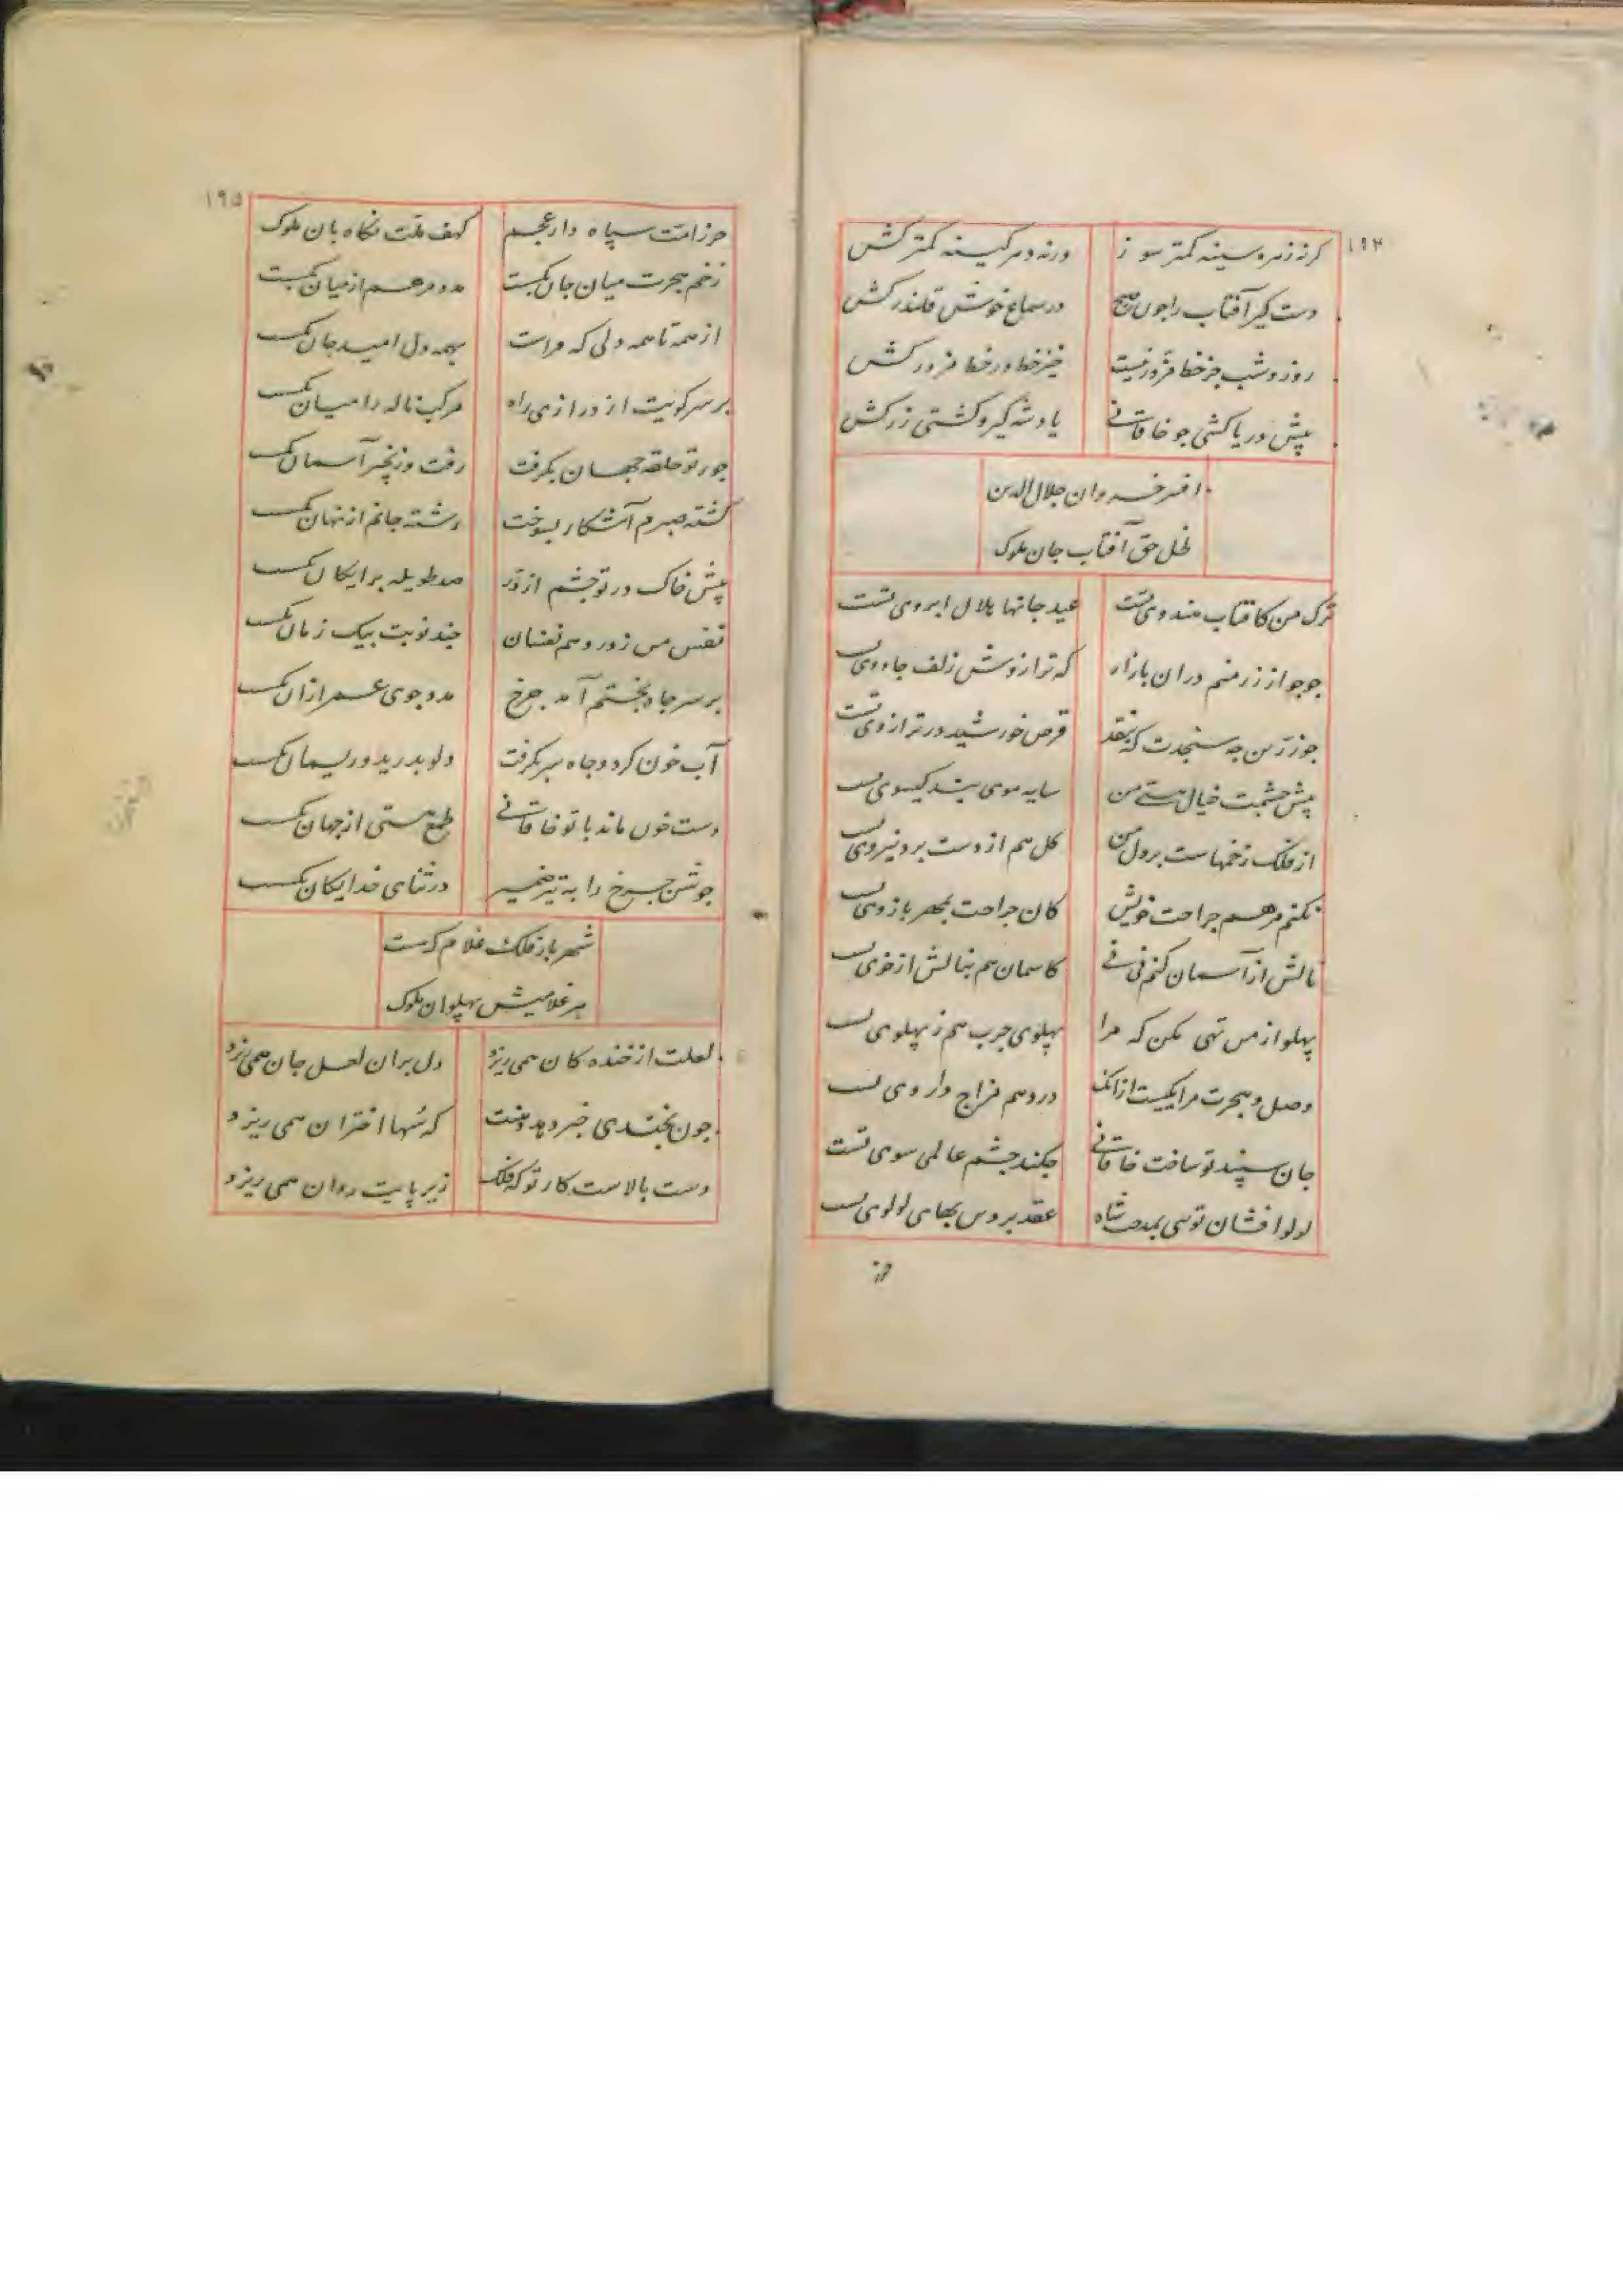 ۱۹۴
گر نه زهره سینه کمتر سوز ورنه دهر کینه کمتر کش
دست گیر آفتاب را چون صبح در سماع خوش قلندر کش
روز و شب جز خط مزور نیست خیز خط در خط مزور کش
پیش دریاکشی چو خاقانی یاد شه گیر و کشتی زر کش
افسر خسروان جلال الدین
ظل حق آفتاب جان ملوک
ترک من کافتاب هندوی تست عید جانها هلال ابروی تست
جوجو از زر منم در آن بازار که ترازوش زلف جادوی تست
جو زرین چه سنجدت که بنقد قرص خورشید در ترازوی تست
پیش چشمت خیال هستی من سایه موی بند گیسوی تست
از فلک زخمهاست بر دل من کان هم از دست برد نیروی تست
نکنم مرهم جراحت خویش کان جراحت بمهر بازوی تست
نالش از آسمان کنم نی نی کاسمان هم بنالش از خوی تست
پهلو از من تهی مکن که مرا پهلوی چرب هم ز پهلوی تست
وصل و هجرت مرا یکیست از آنک درد هم مزاج داروی تست
جان سپند تو ساخت خاقانی چکند چشم عالمی سوی تست
لولو افشان تویی بمدحت شاه عقد پروین بهای لولوی تست
حرز
۱۹۵
حرز امت سپاه دار عجم کهف ملت نگاه بان ملوک
زخم هجرت میان جان بگسست مدد مرهم از میان بگسست
از همه تا همه دلی که مراست بهمه دل امید جان بگسست
بر سر کویت از درازی راه مرکب ناله را میان بگسست
جور تو حلقه جهان بگرفت رفت و زنجیر آسمان بگسست
کشته صبرم آشکار بسوخت رشته جانم از نهان بگسست
پیش خاک در تو چشم از در صد طویله برایگان بگسست
نفس من ز درد هم نفسان چند نوبت بیک زمان بگسست
بر سر چاه بختم آمد چرخ مدد جوی عمر از آن بگسست
آب خون کرد و چاه سر بگرفت دلو بدرید و ریسمان بگسست
دست خون ماند با تو خاقانی طمع هستی از جهان بگسست
جوشن چرخ را به تیر ضمیر در ثنای خدایگان بگسست
شهر باز فلک غلام که هست
هر غلامیش پهلوان ملوک
لعلت از خنده کان همی ریزد دل بران لعل جان همی ریزد
چون بخندی خبر دهد دهنت که سها اختران همی ریزد
دست بالاست کار تو که فلک زیر پایت روان همی ریزد